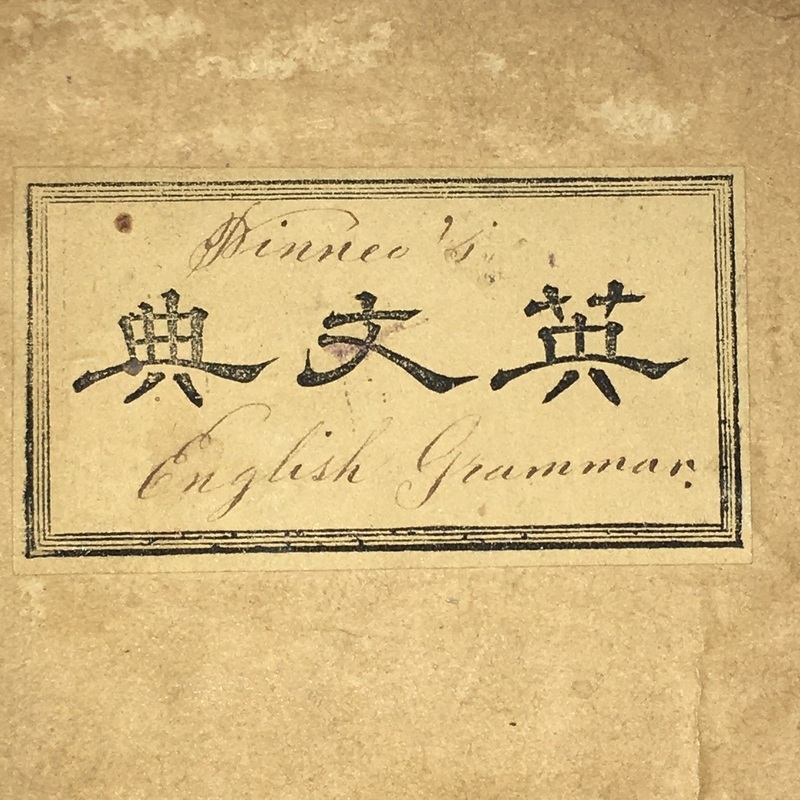 Pinneo's
英文典
English Grammar.